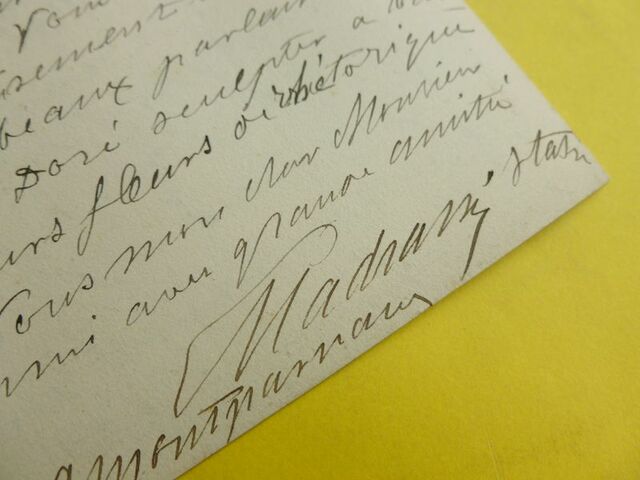 Vou
sement
beaux parlair
Doré sculpter a
urs fleurs de rhétorique
Vous mon cher Monsieur
mi avec grande amitié
Madrassi statu
montparnasse